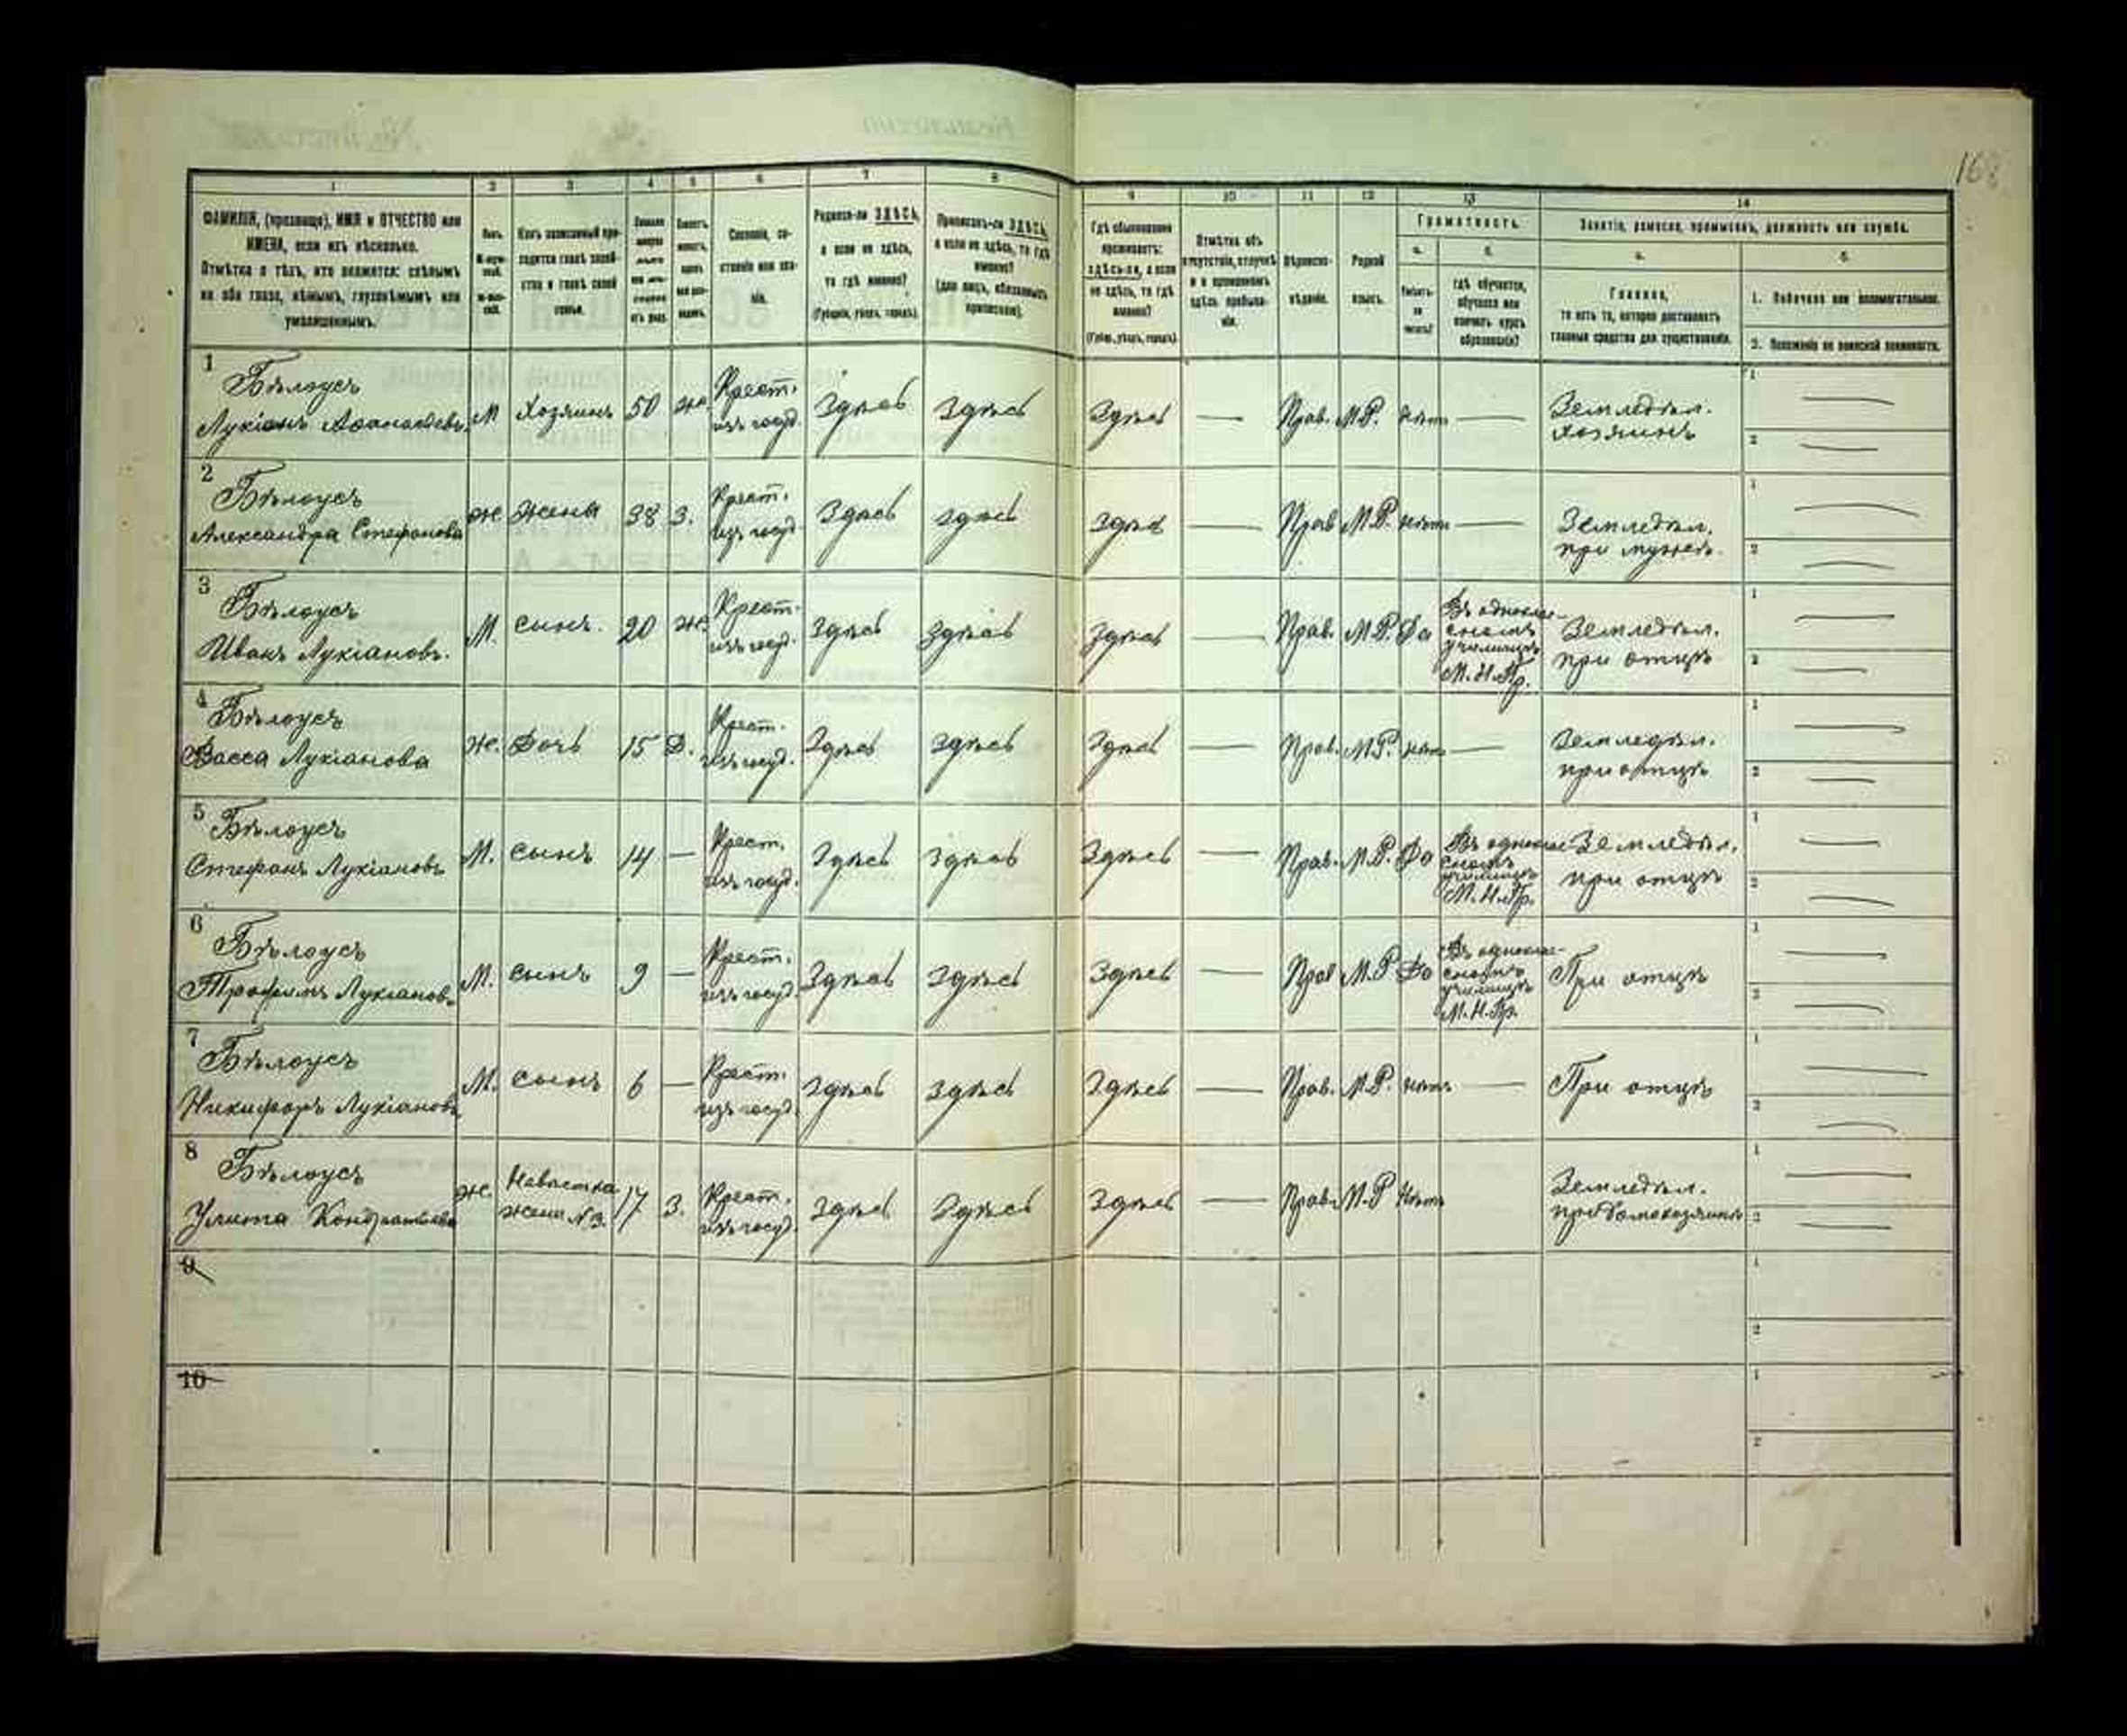 168
1
2
3
4
5
6
7
8
ФАМИЛІЯ, (прозвище), ИМЯ и ОТЧЕСТВО или
ИМЕНА, если ихъ нѣсколько.
Отмѣтка о тѣхъ, кто окажется: слѣпымъ
на оба глаза, нѣмымъ, глухонѣмымъ или
умалишеннымъ.
Полъ.
Какъ записанный при-
ходится главѣ хозяй-
ства и главѣ своей
семьи.
Сословіе, со-
стояніе или зва-
ніе.
Родился-ли ЗДѢСЬ,
а если не здѣсь,
то гдѣ именно?
(Губернія, уѣздъ, городъ).
Приписанъ-ли ЗДѢСЬ,
а если не здѣсь, то гдѣ
именно?
(для лицъ, обязанныхъ
припискою).
9
10
11
12
13
14
Гдѣ обыкновенно
проживаетъ:
здѣсь-ли, а если
не здѣсь, то гдѣ
именно?
(Губер., уѣздъ, городъ)
Отмѣтка объ
отсутствіи, отлучкѣ
и о временномъ
здѣсь пребыва-
ніи.
Вѣроиспо-
вѣданіе.
Родной
языкъ.
Грамотность.
а.
б.
Умѣетъ-
ли
читать?
гдѣ обучается,
обучался или
кончилъ курсъ
образованія?
Занятіе, ремесло, промыселъ, должность или служба.
а.
б.
Главное,
то есть то, которое доставляетъ
главныя средства для существованія.
1. Побочное или вспомогательное.
2. Положеніе по воинской повинности.
1
Бѣлоусъ
Лукіанъ Аѳанасьевъ М Хозяинъ 50 Же Крест. изъ госуд. Здѣсь Здѣсь Здѣсь — Прав. М.Р. нѣтъ — Земледѣл. хозяинъ
2
Бѣлоусъ
Александра Стефанова Ж Жена 38 З. Крест. изъ госуд. Здѣсь Здѣсь Здѣсь — Прав М.Р. нѣтъ — Земледѣл. при мужѣ.
3
Бѣлоусъ
Иванъ Лукіановъ. М. сынъ. 20 Же. Крест. изъ госуд. Здѣсь Здѣсь Здѣсь — Прав. М.Р. Да Въ одноклас-сномъ училищѣ М.Н.Пр. Земледѣл. при отцѣ
4
Бѣлоусъ
Васса Лукіанова Же. Дочь 15 Д. Крест. изъ госуд. Здѣсь Здѣсь Здѣсь — Прав. М.Р. нѣтъ — Земледѣл. при отцѣ
5
Бѣлоусъ
Стефанъ Лукіановъ М. сынъ 14 — Крест. изъ госуд. Здѣсь Здѣсь Здѣсь — Прав. М.Р. Да Въ одноклас-сномъ училищѣ М.Н.Пр. Земледѣл. при отцѣ
6
Бѣлоусъ
Трофимъ Лукіановъ М. сынъ 9 — Крест. изъ госуд. Здѣсь Здѣсь Здѣсь — Прав М.Р Да Въ одноклас-сномъ училищѣ М.Н.Пр. При отцѣ
7
Бѣлоусъ
Никифоръ Лукіановъ М. сынъ 6 — Крест. изъ госуд. Здѣсь Здѣсь Здѣсь — Прав. М.Р. нѣтъ — При отцѣ
8
Бѣлоусъ
Улита Кондратьева Же. Невѣстка жена №3. 17 З. Крест. изъ госуд. Здѣсь Здѣсь Здѣсь — Прав. М.Р Нѣтъ Земледѣл. при домохозяинѣ
9
10